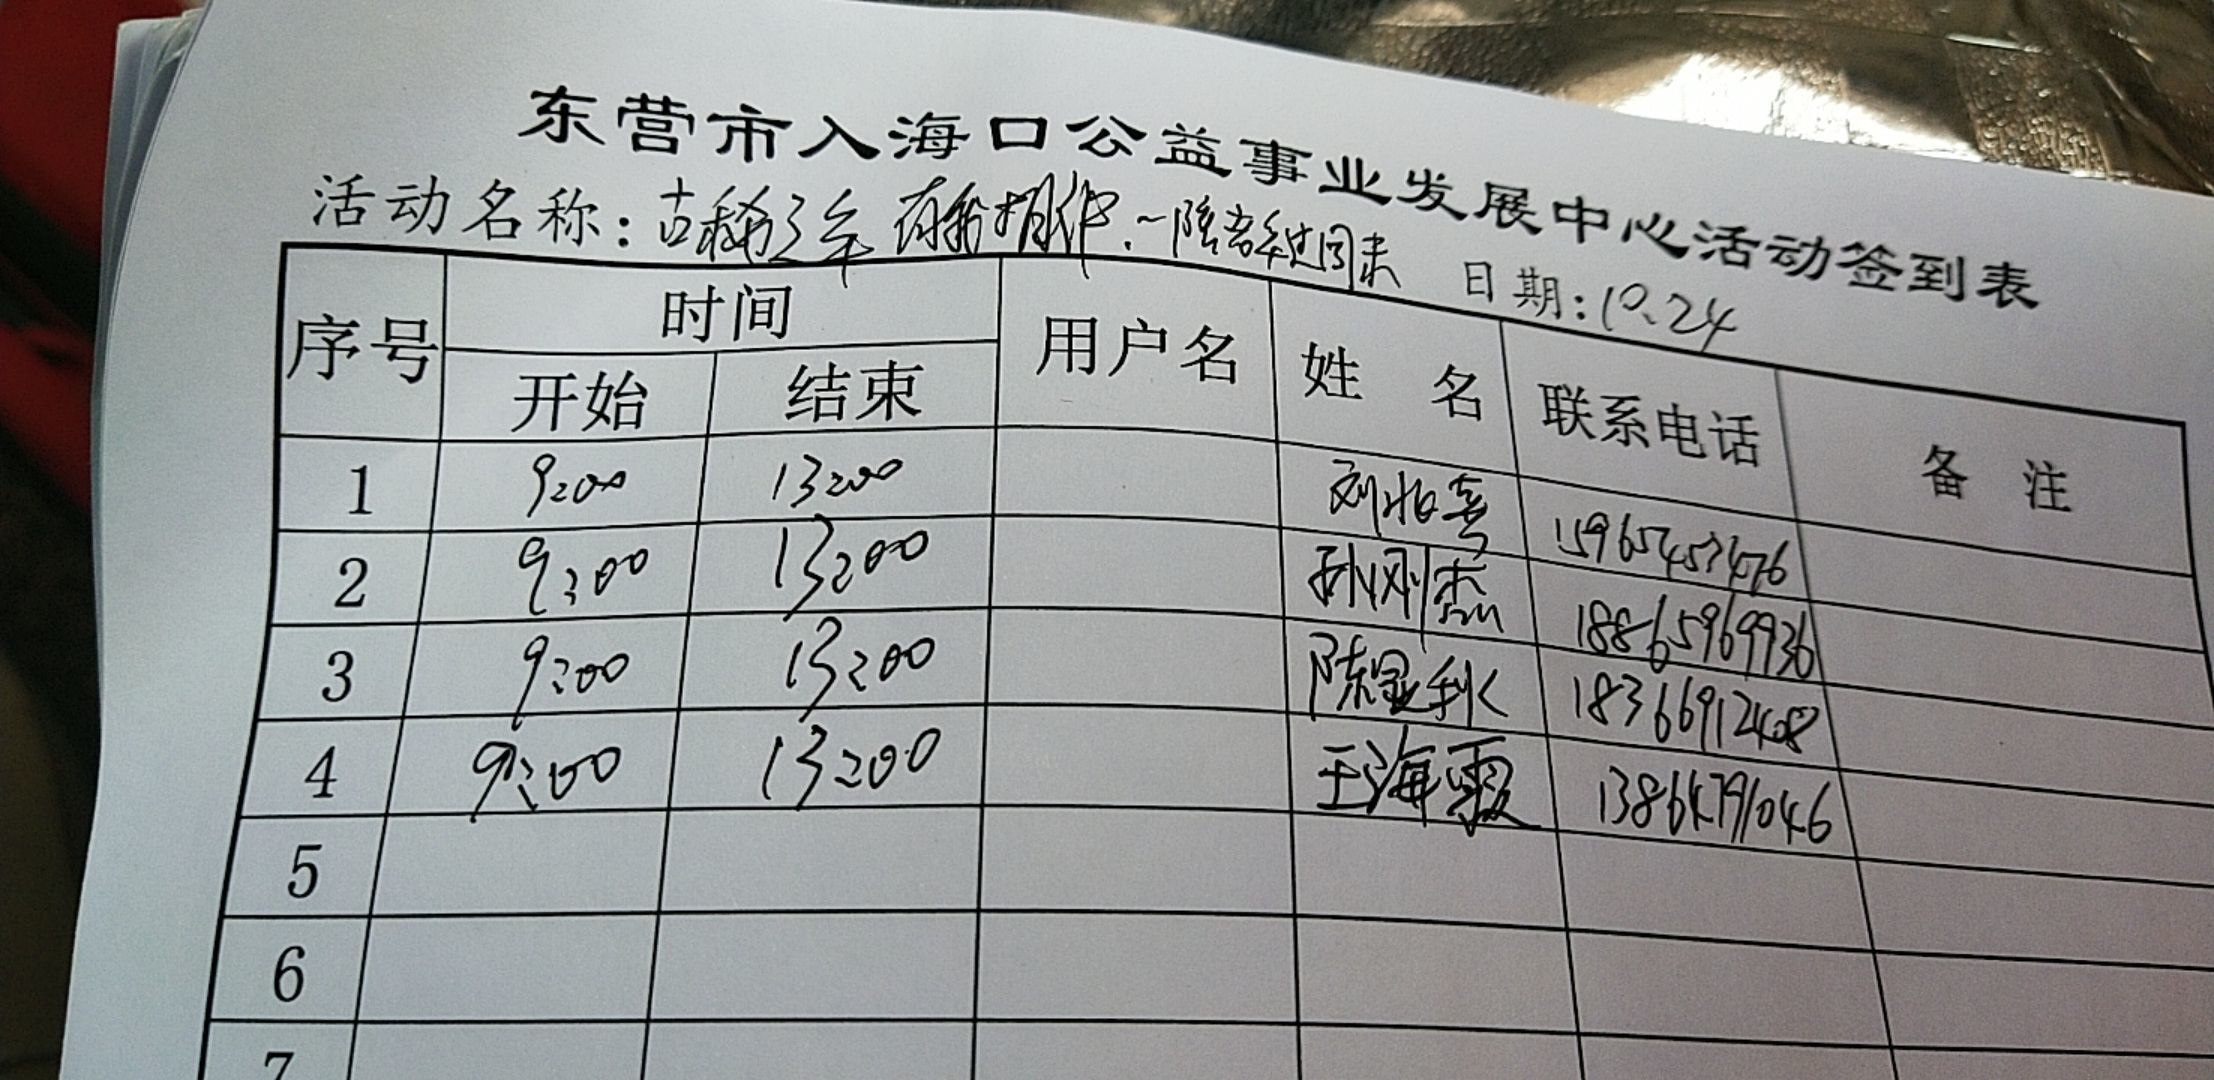 东营市入海口公益事业发展中心活动签到表
活动名称：古稀之年 有我相伴、一陪老年过周末 日期：10.24
序号 时间 用户名 姓 名 联系电话 备 注
开始 结束
1 9:00 13:00 刘喜 15965453476
2 9:00 13:00 孙刚杰 18865969936
3 9:00 13:00 陈 18366912408
4 9:00 13:00 王海霞 13864791046
5
6
7